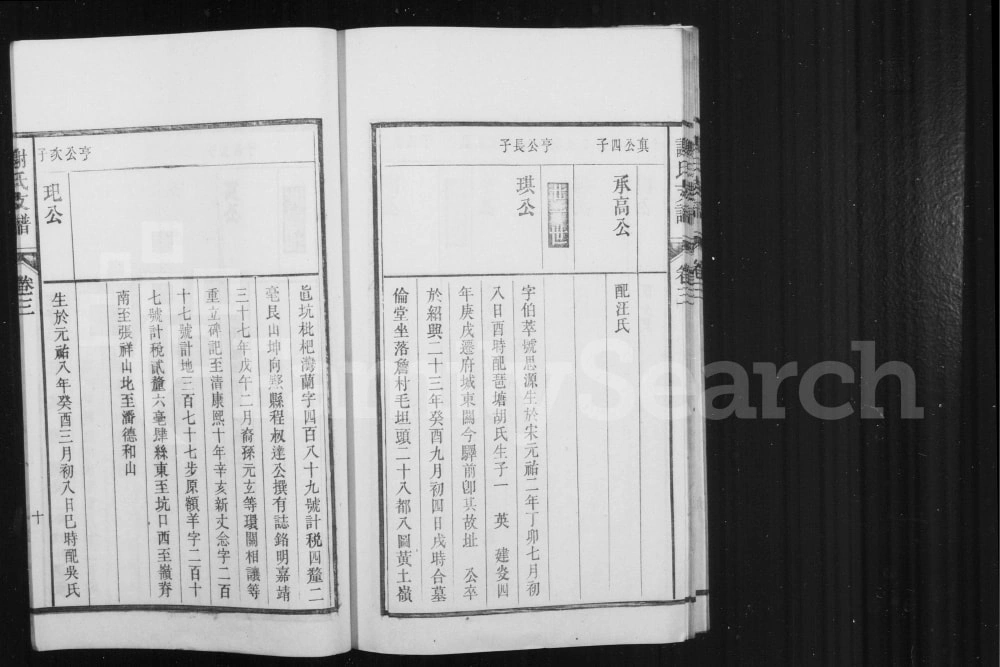 謝氏支譜
卷三
真公四子
承高公
配汪氏
世
亨公長子
琪公
字伯萃號思源生於宋元祐二年丁卯七月初
八日酉時配琶塘胡氏生子一　英　建炎四
年庚戌遷府城東關今驛前卽其故址　公卒
於紹興二十三年癸酉九月初四日戌時合墓
倫堂坐落詹村毛坦頭二十八都八圖黃土嶺
眞坑枇杷灣蘭字四百八十九號計税四釐二
毫艮山坤向黟縣程叔達公撰有誌銘明嘉靖
三十七年戊午二月裔孫元玄等環關相議等
重立碑記至清康熙十年辛亥新丈念字二百
十七號計地三百七十七步原額羊字二百十
七號計税貳釐六毫肆絲東至坑口西至嶺脊
南至張祥山北至潘德和山
亨公次子
玘公
生於元祐八年癸酉三月初八日巳時配吳氏
謝氏支譜
卷三
十
FamilySearch